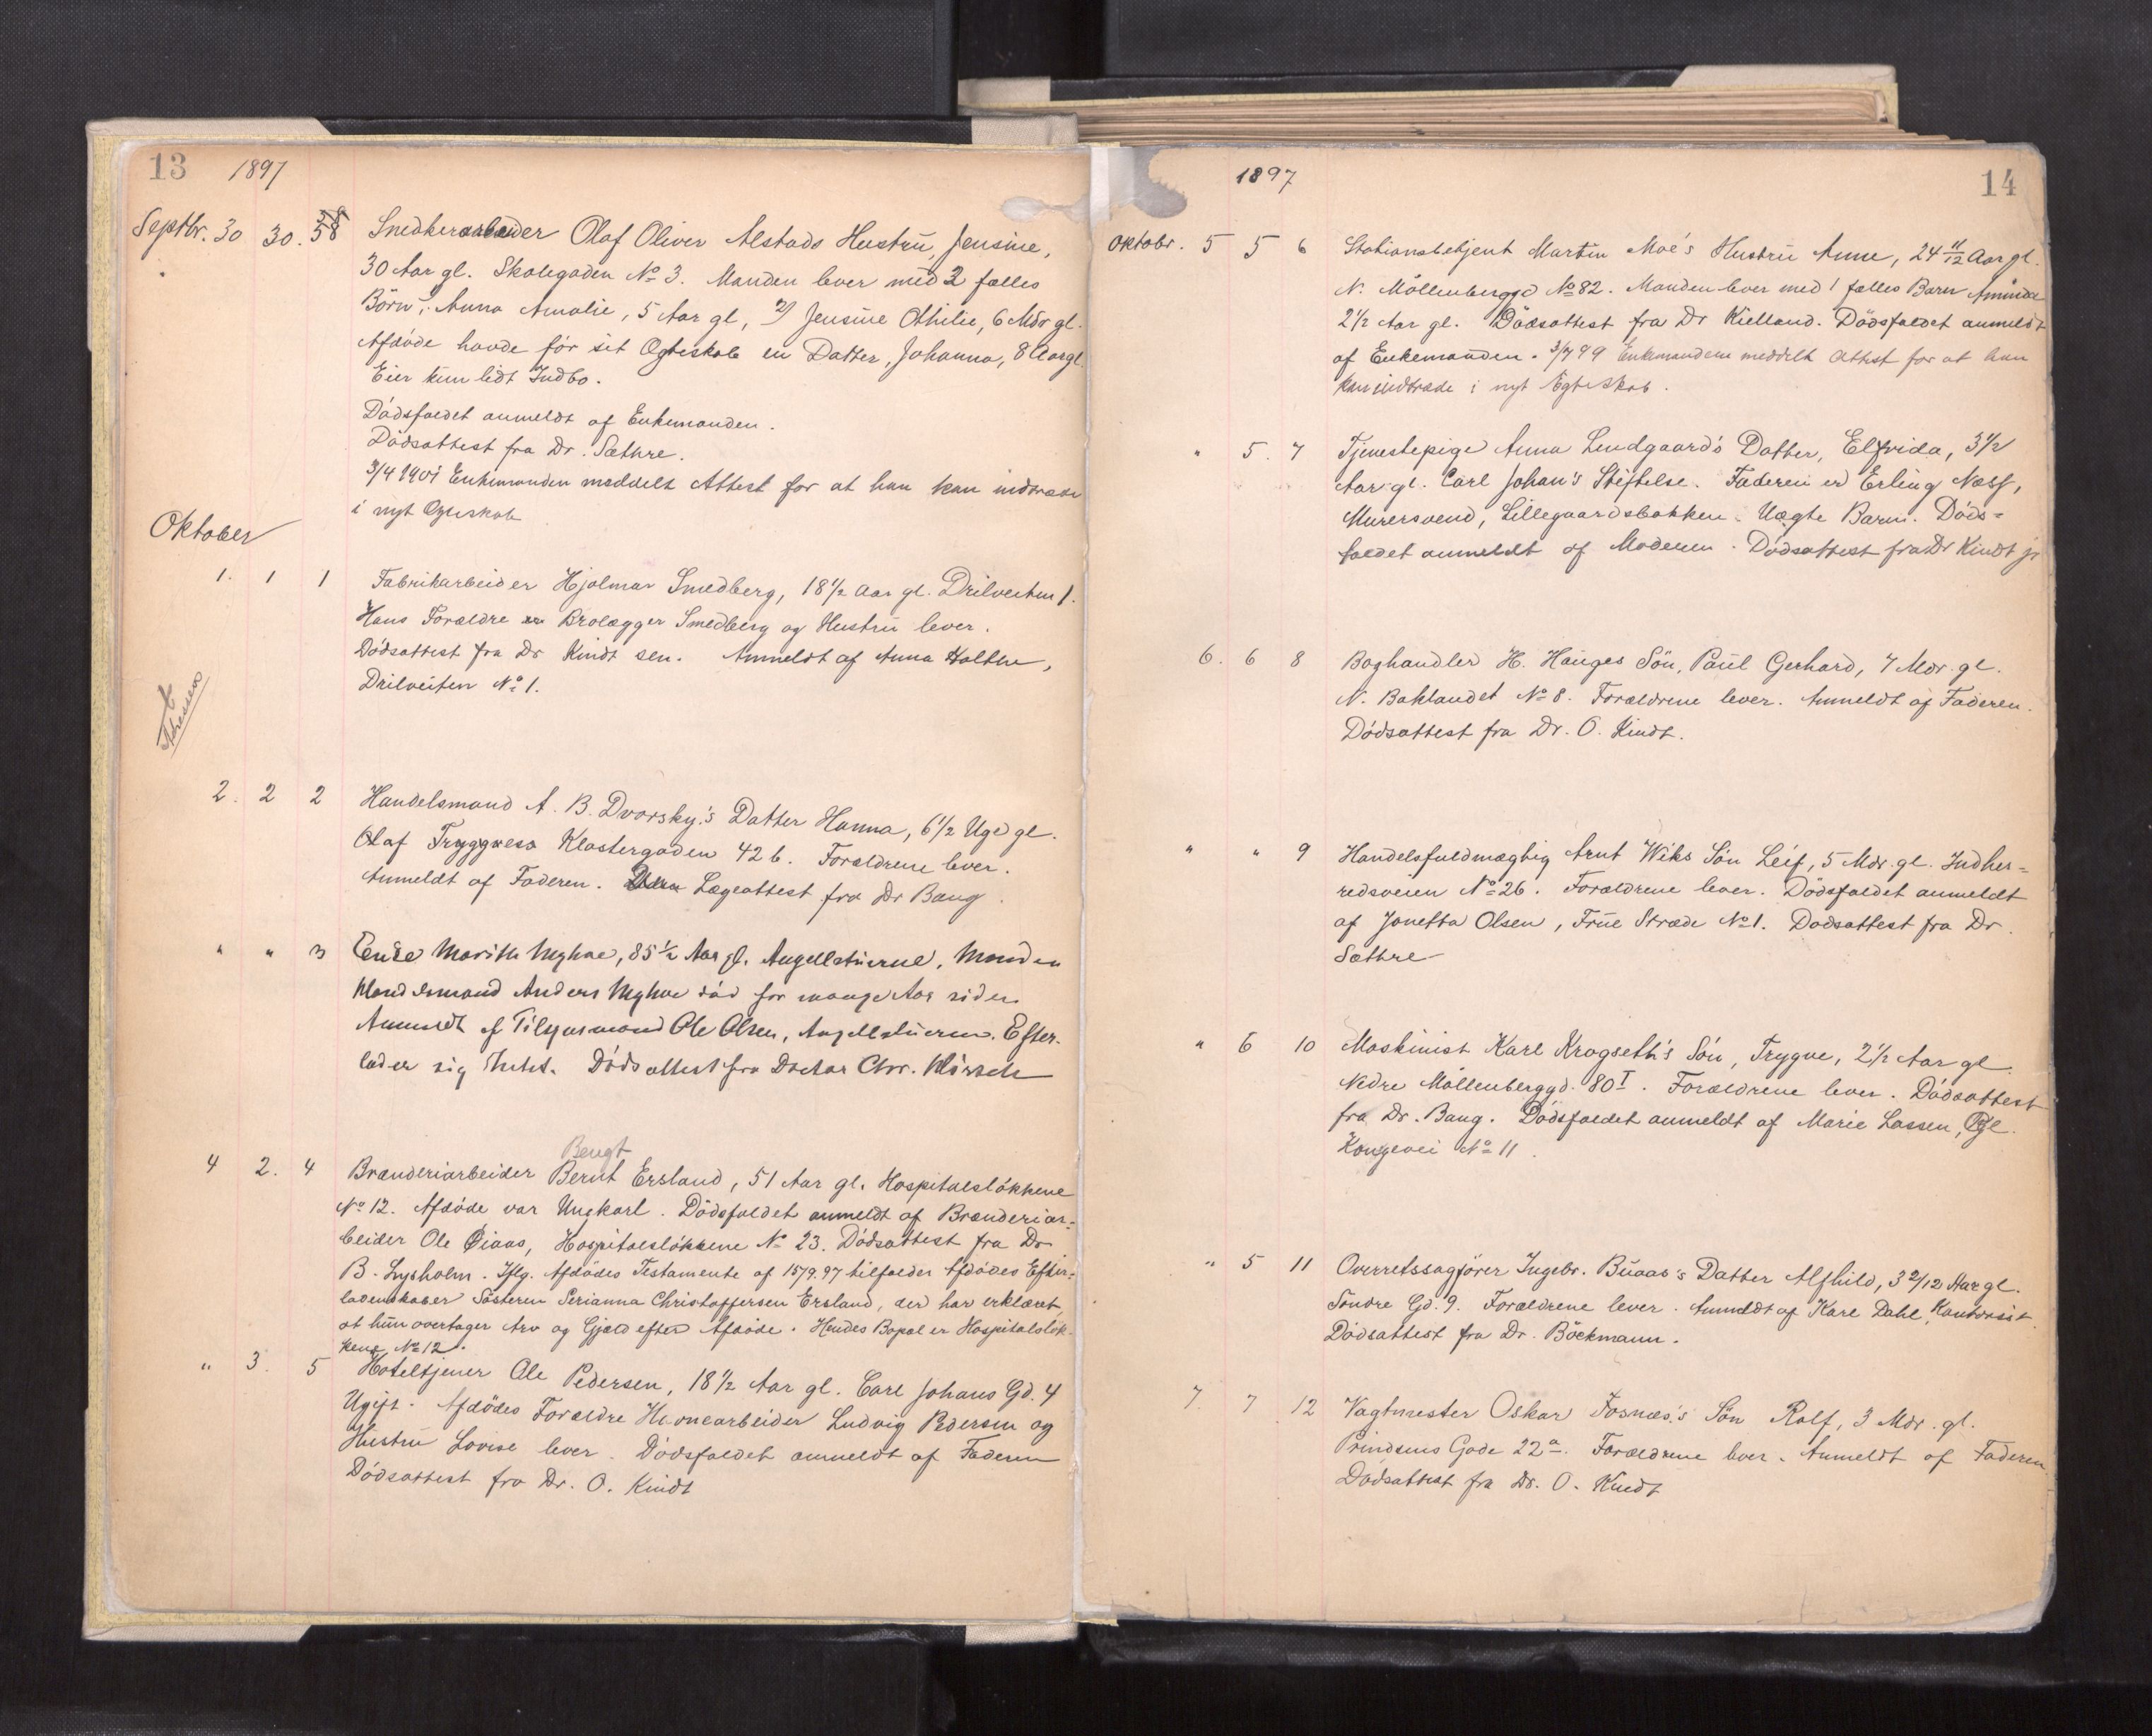 13 1897
Septbr. 30 30. 58 Snedkerarbeider Olaf Oliver Alstads Hustrü, Jensine,
30 Aar gl. Skolegaden No 3. Manden lever med 2 fælles
Börn: Anna Amalie, 5 Aar gl, 2/ Jensine Othilie, 6 Mdr gl.
Afdöde havde för sit Ægteskab en Datter, Johanna, 8 Aar gl.
Eier kun lidt Indbo.
Dödsfaldet anmeldt af Enkemanden.
Dödsattest fra Dr. Sæthre.
3/4 1901 Enkemanden meddelt Attest for at han kan indtræde
i nyt Ægteskab
Oktober
1. 1 1 Fabrikarbeider Hjalmar Smedberg, 18 1/2 Aar gl. Drilveiten 1.
Hans Forældre Brolægger Smedberg og Hustrü lever.
Dödsattest fra Dr Kindt sen. Anmeldt af Anna Holthe,
Drilveiten No 1.
2. 2 2 Handelsmand A. B. Dvorsky's Datter Hanna, 6 1/2 Uge gl.
Olaf Tryggvess Klostergaden 42 b. Forældrene lever.
Anmeldt af Faderen. Lægeattest fra Dr Bang.
" " 3 Enke Marith Myhre, 85 1/2 Aar gl. Angellstuerne. Manden
Handelsmand Anders Myhre död for mange Aar siden
Anmeldt af Tilsynsmand Ole Olsen, Angellstuerne. Efter-
lader sig Intet. Dödsattest fra Doctor Chr.
Bengt
4 2. 4 Brænderiarbeider Bernt Ersland, 51 Aar gl. Hospitalslökkene
No 12. Afdöde var Ungkarl. Dödsfaldet anmeldt af Brænderiar-
beider Ole Öiaas, Hospitalslökkene No 23. Dödsattest fra Dr
B. Lysholm. Iflg. Afdödes Testamente af 15/9.97 tilfalder Afdödes Efter-
ladenskaber Sösteren Serianna Christoffersen Ersland, der har erklæret,
at hün overtager Arv og Gjæld efter Afdöde. Hendes Bopæl er Hospitalslök-
kene No 12.
" 3. 5 Hoteltjener Ole Pedersen, 18 1/2 Aar gl. Carl Johans Gd. 4
Ugift. Afdödes Forældre Havnearbeider Ludvig Pedersen og
Hustrü Lovise lever. Dödsfaldet anmeldt af Faderen
Dödsattest fra Dr. O. Kindt
1897 14
Oktobr. 5 5 6 Stationsbetjent Martin Moe's Hustrü Anne, 24 11/12 Aar gl.
N. Möllenberggd No 82. Manden lever med 1 fælles Barn Aminda
2 1/2 Aar gl. Dödsattest fra Dr Kielland. Dödsfaldet anmeldt
af Enkemanden. 3/7 99 Enkemanden meddelt Attest for at han
kan indtræde i nyt Ægteskab.
" 5. 7 Tjenestepige Anna Lundgaard's Datter, Elfrida, 3 1/2
Aar gl. Carl Johan's Stiftelse. Faderen er Erling Næss,
Murersvend, Lillegaardsbakken. Uægte Barn. Döds-
faldet anmeldt af Moderen. Dödsattest fra Dr Kindt jr
6. 6 8 Boghandler H. Haüges Sön, Paül Gerhard, 7 Mdr. gl.
N. Baklandet No 8. Forældrene lever. Anmeldt af Faderen.
Dödsattest fra Dr. O. Kindt.
" " 9 Handelsfuldmægtig Arnt Wiks Sön Leif, 5 Mdr. gl. Indher-
redsveien No 26. Forældrene lever. Dödsfaldet anmeldt
af Jonetta Olsen, Früe Stræde No 1. Dödsattest fra Dr.
Sæthre
" 6 10 Maskinist Karl Krogseth's Sön, Trygve, 2 1/2 Aar gl.
Nedre Möllenberggd. 80 I. Forældrene lever. Dödsattest
fra Dr. Bang. Dödsfaldet anmeldt af Marie Lassen, Gl.
Kongevei No 11.
" 5 11 Overretssagförer Ingebr. Büaas's Datter Alfhild, 3 2/12 Aar gl.
Söndre Gd. 9. Forældrene lever. Anmeldt af Karl Dahl, Kontorist
Dödsattest fra Dr. Böckmann.
7. 7 12 Vagtmester Oskar Fosnæs's Sön Rolf, 3 Mdr. gl.
Prindsens Gade 22 a. Forældrene lever. Anmeldt af Faderen
Dödsattest fra Dr. O. Kindt